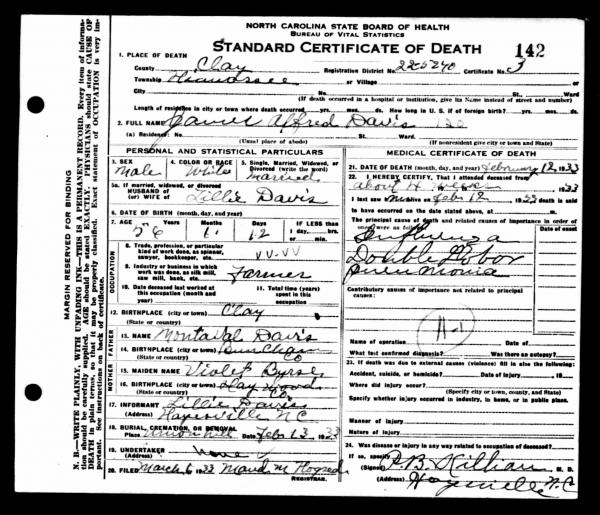 NORTH CAROLINA STATE BOARD OF HEALTH
BUREAU OF VITAL STATISTICS
STANDARD CERTIFICATE OF DEATH 142
MARGIN RESERVED FOR BINDING
N. B.—WRITE PLAINLY, WITH UNFADING INK—THIS IS A PERMANENT RECORD. Every item of information should be carefully supplied. AGE should be stated EXACTLY. PHYSICIANS should state CAUSE OF DEATH in plain terms, so that it may be properly classified. Exact statement of OCCUPATION is very important. See instructions on back of certificate.
1. PLACE OF DEATH
County Clay Registration District No. Certificate No. 3
Township or Village
City No. St. Ward
(If death occurred in a hospital or institution, give its Name instead of street and number)
Length of residence in city or town where death occurred yrs. mos. ds. How long in U. S. if of foreign birth? yrs. mos. ds.
2. FULL NAME Alfred Davis
(a) Residence: No. St. Ward
(Usual place of abode) (If nonresident give city or town and State)
PERSONAL AND STATISTICAL PARTICULARS
3. SEX Male
4. COLOR OR RACE White
5. Single, Married, Widowed, or Divorced (write the word) Married
5a. If married, widowed, or divorced
HUSBAND of
(or) WIFE of Lillie Davis
6. DATE OF BIRTH (month, day, and year)
7. AGE Years Months Days IF LESS than
56 11 12 1 day, hrs.
or min.
OCCUPATION
8. Trade, profession, or particular kind of work done, as spinner, sawyer, bookkeeper, etc. VV-VV
9. Industry or business in which work was done, as silk mill, saw mill, bank, etc. Farmer
10. Date deceased last worked at this occupation (month and year)
11. Total time (years) spent in this occupation
12. BIRTHPLACE (city or town) Clay
(State or country)
FATHER
13. NAME Davis
14. BIRTHPLACE (city or town)
(State or country) Co
MOTHER
15. MAIDEN NAME Violet
16. BIRTHPLACE (city or town)
(State or country) Co.
17. INFORMANT Lillie Davis
(Address) Hayesville N C
18. BURIAL, CREMATION, OR REMOVAL
Place Union hill Date Feb 13, 1933
19. UNDERTAKER none
(Address)
20. FILED March 6, 1933 Maud M Hogsed
REGISTRAR
MEDICAL CERTIFICATE OF DEATH
21. DATE OF DEATH (month, day, and year) February 12 1933
22. I HEREBY CERTIFY, That I attended deceased from
about 1933
I last saw Feb 12 1933 death is said
to have occurred on the date stated above, at m.
The principal cause of death and related causes of importance in order of onset were as follows: Date of onset
Influenza
Double Lobar
Pneumonia
Contributory causes of importance not related to principal causes:
11-1
Name of operation Date of
What test confirmed diagnosis? Was there an autopsy?
23. If death was due to external causes (violence) fill in also the following:
Accident, suicide, or homicide? Date of injury 19
Where did injury occur?
(Specify city or town, county, and State)
Specify whether injury occurred in industry, in home, or in public place.
Manner of injury
Nature of injury
24. Was disease or injury in any way related to occupation of deceased?
If so, specify
(Signed) P.B. Killian M. D.
(Address) Hayesville N.C